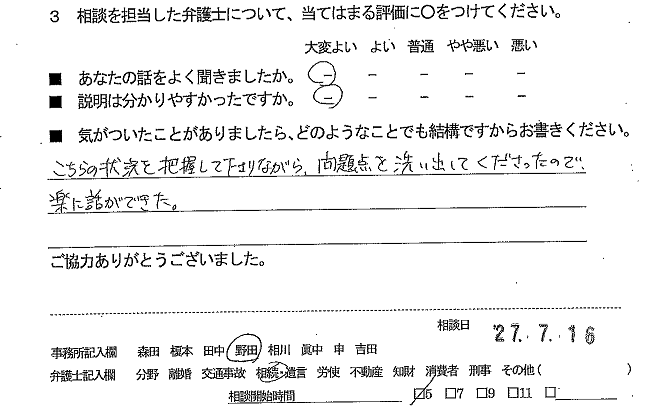 3 相談を担当した弁護士について、当てはまる評価に○をつけてください。
大変よい よい 普通 やや悪い 悪い
■ あなたの話をよく聞きましたか。 － － － － －
■ 説明は分かりやすかったですか。 － － － － －
■ 気がついたことがありましたら、どのようなことでも結構ですからお書きください。
こちらの状況を把握して下さりながら、問題点を洗い出してくださったので、
楽に話ができた。
ご協力ありがとうございました。
相談日 27. 7. 16
事務所記入欄 森田 榎本 田中 野田 相川 眞中 申 吉田
弁護士記入欄 分野 離婚 交通事故 相続・遺言 労使 不動産 知財 消費者 刑事 その他( )
相談開始時間 □5 □7 □9 □11 □